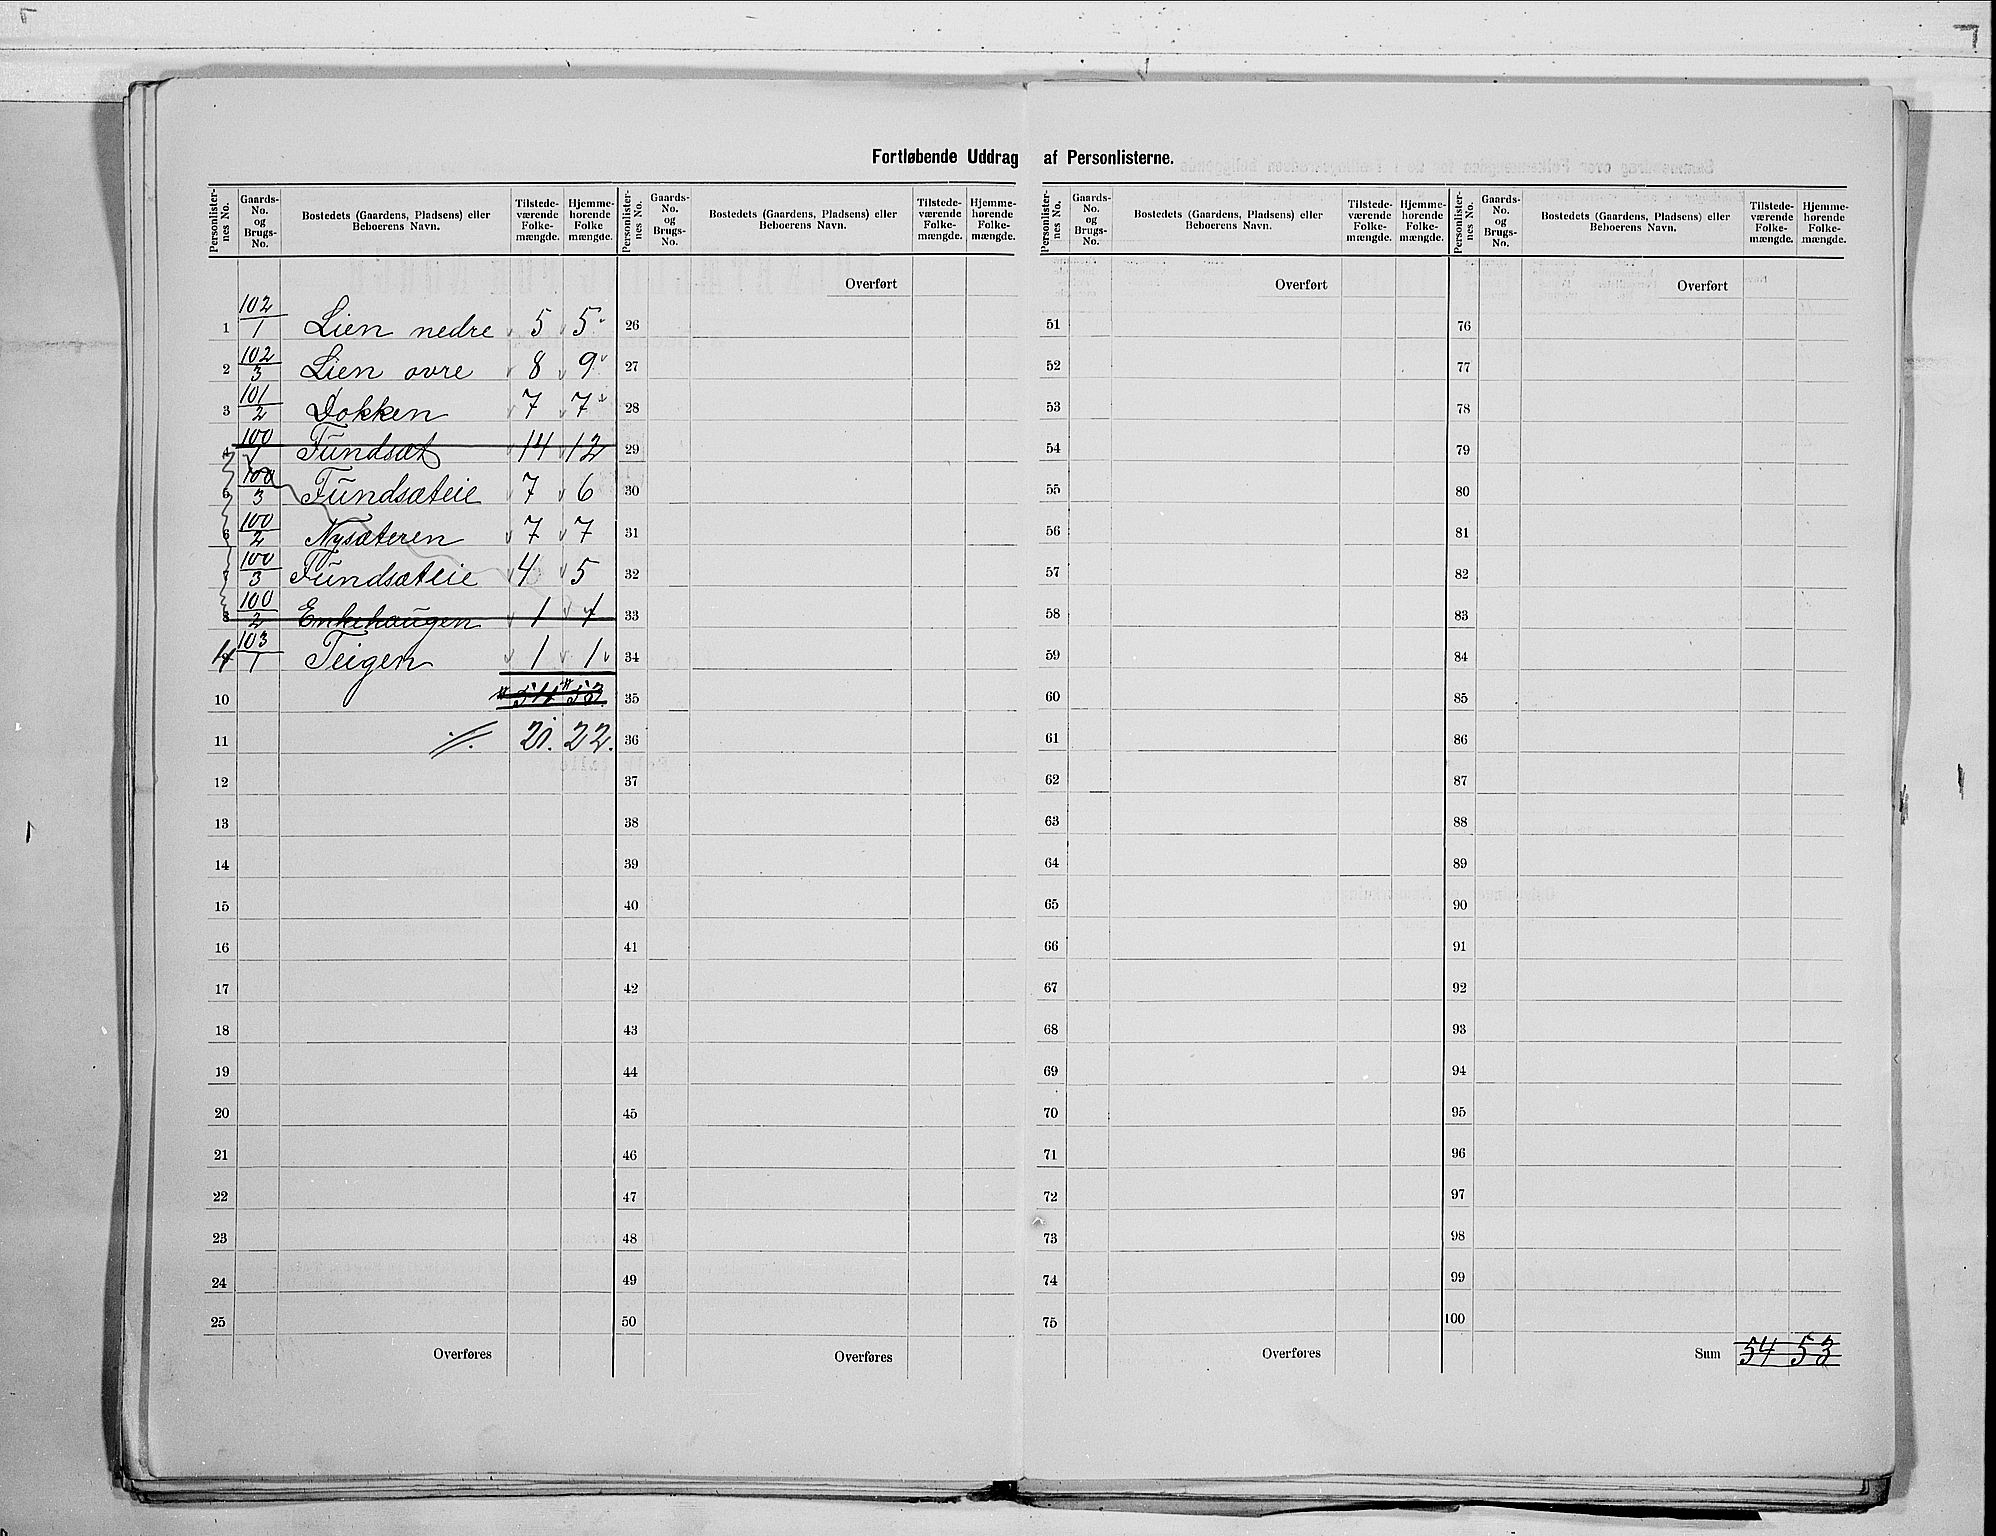 Fortløbende Uddrag af Personlisterne.
Personlister-nes No. | Gaards-No. og Brugs-No. | Bostedets (Gaardens, Pladsens) eller Beboerens Navn. | Tilstede-værende Folke-mængde. | Hjemme-hørende Folke mængde. | Personlister-nes No. | Gaards-No. og Brugs-No. | Bostedets (Gaardens, Pladsens) eller Beboerens Navn. | Tilstede-værende Folke-mængde. | Hjemme-hørende Folke-mængde. | Personlister-nes No. | Gaards-No. og Brugs-No. | Bostedets (Gaardens, Pladsens) eller Beboerens Navn. | Tilstede-værende Folke-mængde. | Hjemme-hørende Folke-mængde. | Personlister-nes No. | Gaards-No. og Brugs-No. | Bostedets (Gaardens, Pladsens) eller Beboerens Navn. | Tilstede-værende Folke-mængde. | Hjemme-hørende Folke-mængde.
Overført Overført Overført
1 102/1 Lien nedre 5 5 26 51 76
2 102/3 Lien ovre 8 9 27 52 77
3 101/2 Dokken 7 7 28 53 78
4 100/1 Fundsæt 14 12 29 54 79
5 100/3 Fundsæteie 7 6 30 55 80
6 100/2 Nysæteren 7 7 31 56 81
7 100/3 Fundsæteie 4 5 32 57 82
8 100/2 Enkehaugen 1 1 33 58 83
4 103/1 Teigen 1 1 34 59 84
10 54 53 35 60 85
11 21. 22. 36 61 86
12 37 62 87
13 38 63 88
14 39 64 89
15 40 65 90
16 41 66 91
17 42 67 92
18 43 68 93
19 44 69 94
20 45 70 95
21 46 71 96
22 47 72 97
23 48 73 98
24 49 74 99
25 50 75 100
Overføres Overføres Overføres Sum 54 53